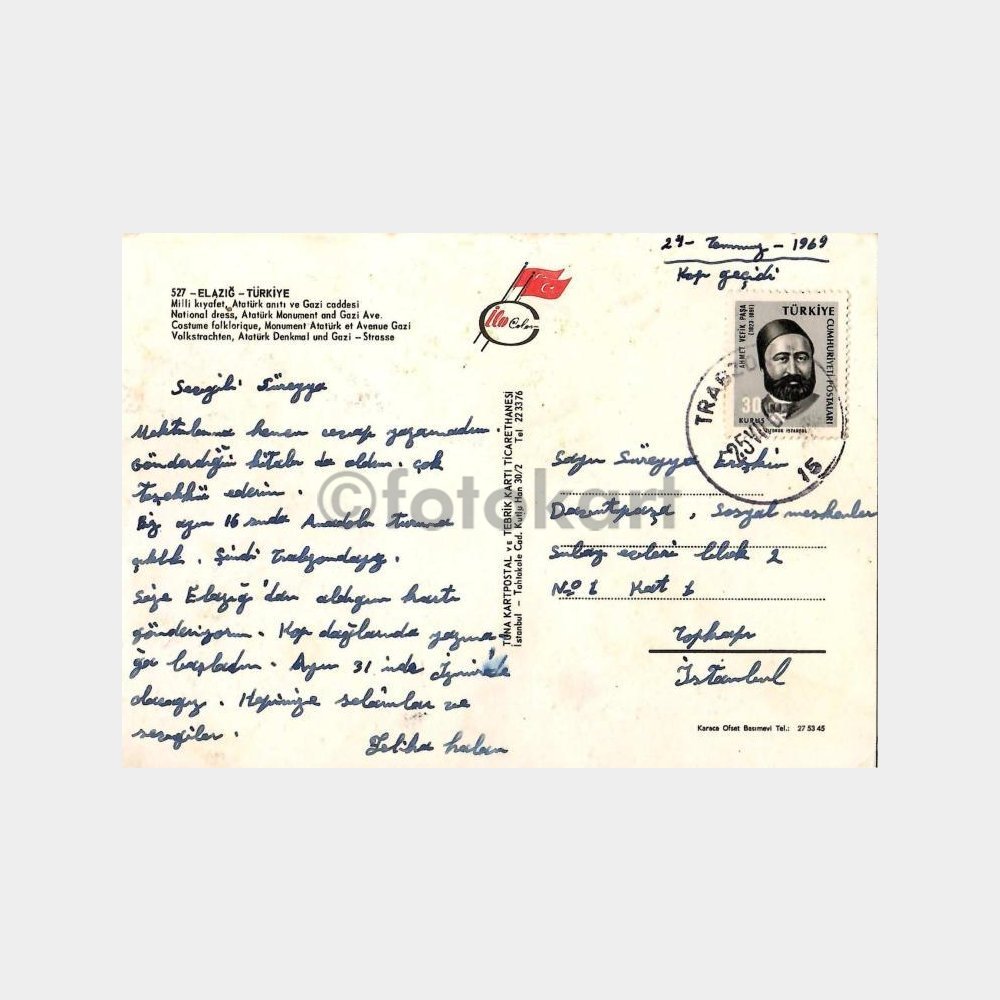 24 - Temmuz - 1969
Kop geçidi
527 - ELAZIĞ - TÜRKİYE
Milli kıyafet, Atatürk anıtı ve Gazi caddesi
National dress, Atatürk Monument and Gazi Ave.
Costume folklorique, Monument Atatürk et Avenue Gazi
Volkstrachten, Atatürk Denkmal und Gazi - Strasse
Color
TÜRKİYE
CUMHURİYETİ POSTALARI
AHMET VEFİK PAŞA
(1823-1891)
30
KURUŞ
15
Sevgili Süreyya
Mektubuna hemen cevap yazamadım.
Gönderdiğin kitabı da aldım. çok
teşekkür ederim.
Biz ayın 16 sında Anadolu turuna
çıktık. Şimdi Trabzondayız.
Size Elazığ'dan aldığım kartı
gönderiyorum. Kop dağlarında yazma-
ğa başladım. Ayın 31 inde İzmir'de
olacağız. Hepinize selâmlar ve
sevgiler.
halan
TUNA KARTPOSTAL ve TEBRİK KARTI TİCARETHANESİ
İstanbul - Tahtakale Cad. Kutlu Han 30/2 Tel 22 33 76
Sayın Süreyya
Davutpaşa, Sosyal meskenler
Subay evleri blok 2
No 1 Kat 1
Topkapı
İstanbul
Karaca Ofset Basımevi Tel.: 27 53 45
©fotokart